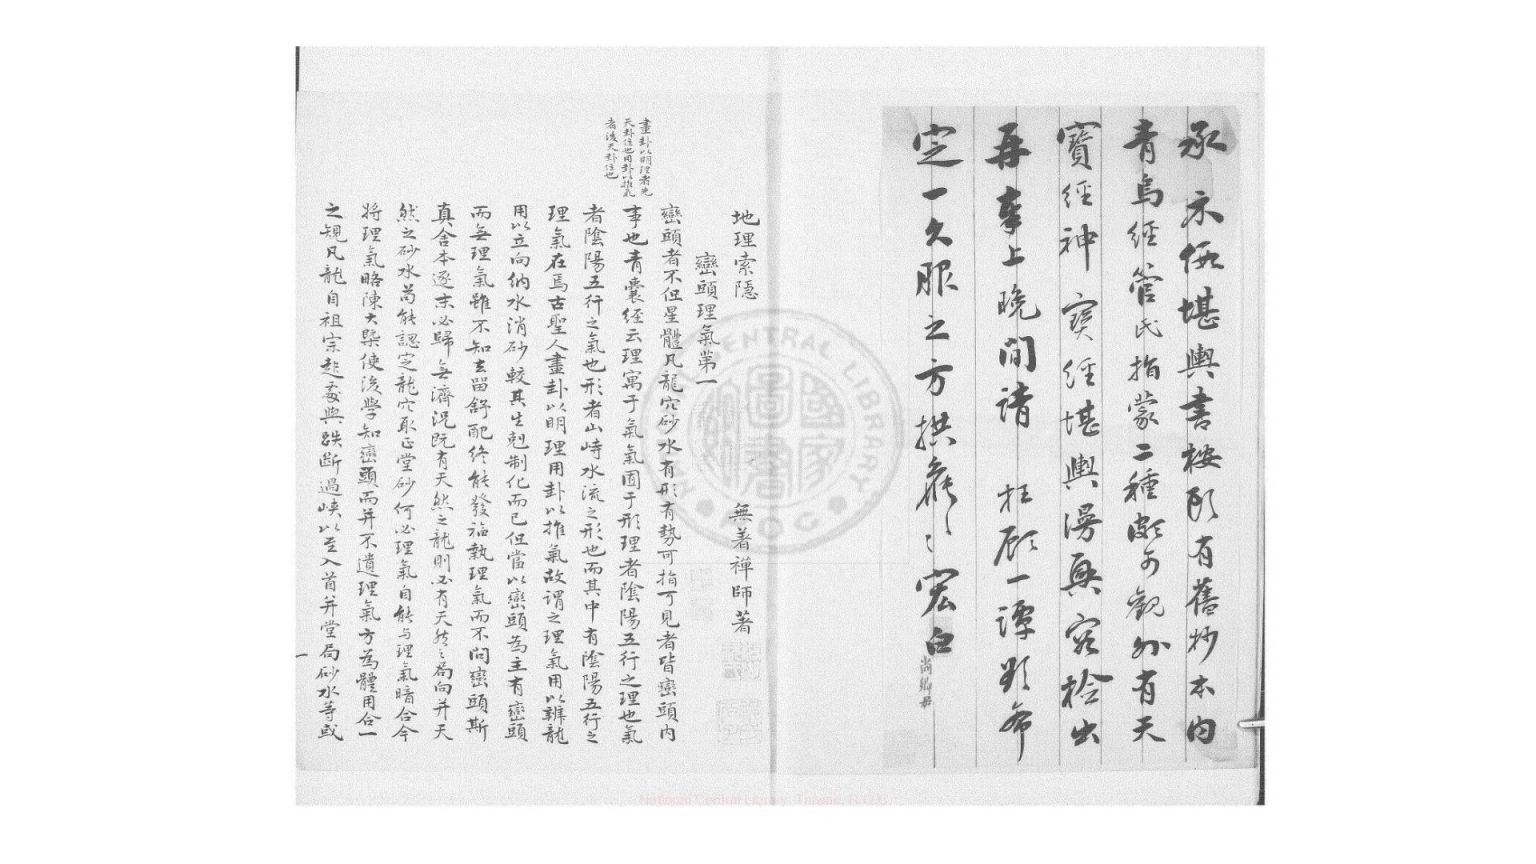 承示假堪輿書按頭有舊抄本內
青烏經管氏指蒙二種頗可觀外有天
寶經神寶經堪輿漫興容檢出
再奉上晚間請 枉顧一譚點希
定一久服之方拱矦〻宏白
尚鄉
地理索隱 無著禪師著
巒頭理氣第一
巒頭者不但星體凡龍穴砂水有形有勢可指可見者皆巒頭內
事也青囊經云理寓于氣氣囿于形理者陰陽五行之理也氣
者陰陽五行之氣也形者山峙水流之形也而其中有陰陽五行之
理氣在焉古聖人畫卦以明理用卦以推氣故謂之理氣用以辨龍
用以立向納水消砂較其生剋制化而已但當以巒頭為主有巒頭
而無理氣雖不知去留舒配終能發福執理氣而不問巒頭斯
真舍本逐末必歸無濟況既有天然之龍則必有天然之局向并天
然之砂水苟能認定龍穴取正堂砂何必理氣自能与理氣暗合今
將理氣略陳大槩使後學知巒頭而并不遺理氣方為體用合一
之規凡龍自祖宗起處與跌斷過峽以至入首并堂局砂水等或
畫卦以明理者先
天卦位也用卦以推氣
者後天卦位也
一
NATIONAL CENTRAL LIBRARY
國家圖書館
R.O.C.
National Central Library, Taiwan, R.O.C.